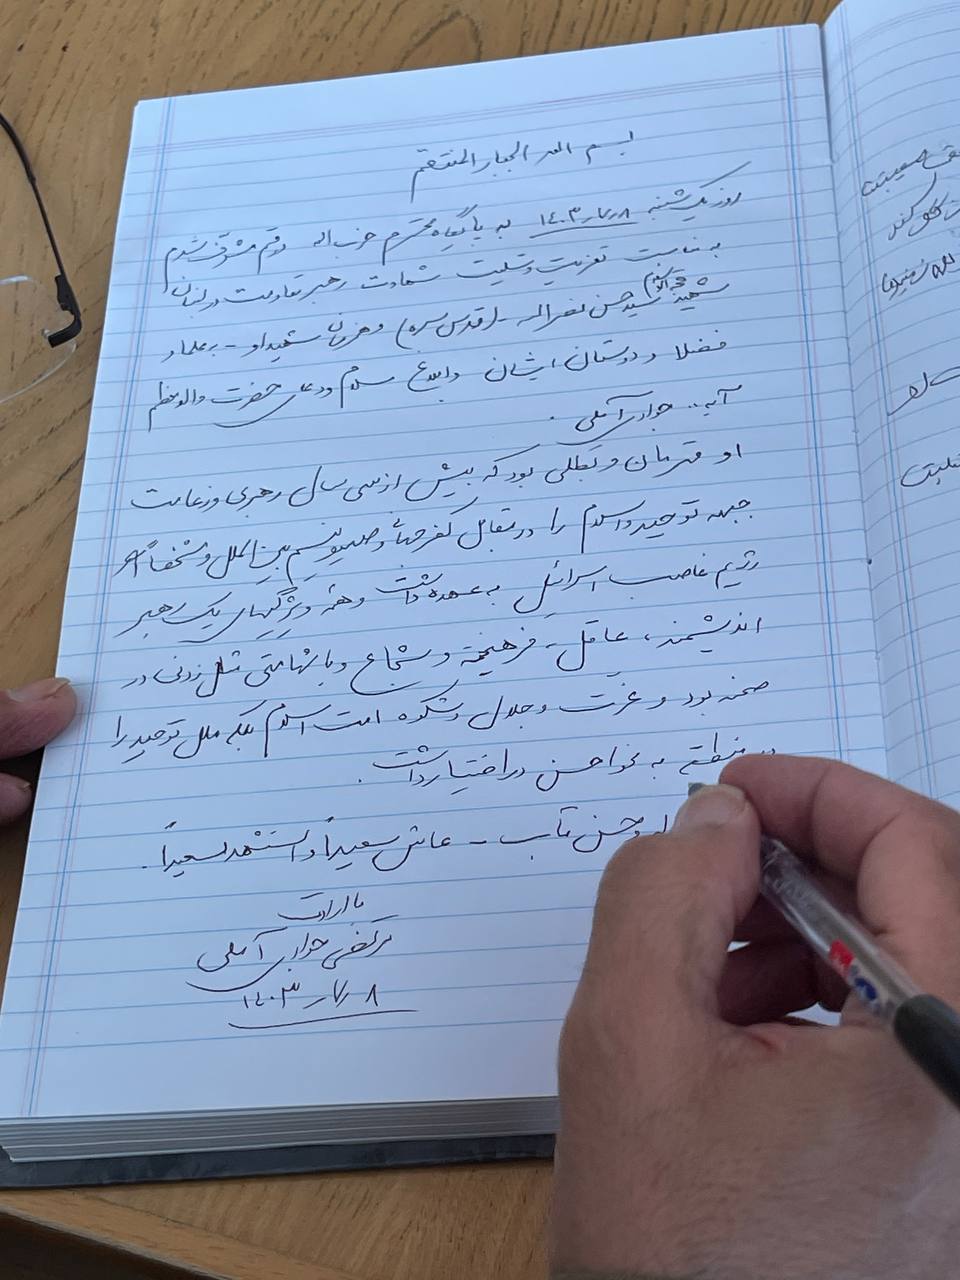 بسم الله الجبار المنتقم
روز یکشنبه ۱۴۰۳/۷/۸ به پایگاه محترم حزب اله قم مشرف شدم
به مناسبت تعزیت و تسلیت شهادت رهبر مقاومت در لبنان
شهید حجة الاسلام سید حسن نصراله - (قدس سره) و همرهان شهید او - به علماء
فضلا و دوستان ایشان و ابلاغ سلام و دعای حضرت والد معظم
آیه.. جوادی آملی.
او قهرمان و بطلی بود که بیش از سی سال رهبری و زعامت
جبهه توحید و اسلام را در مقابل کفر جهانی و صهیونیسم بین الملل و مشخصاً
رژیم غاصب اسرائیل به عهده داشت و همه ویژگیهای یک رهبر
اندیشمند، عاقل - فرهیخته و شجاع و با شهامتی مثل زدنی در
صحنه بود و عزت و جلال و شکوه امت اسلام بلکه ملل توحید را
در منطقه به نحو احسن در اختیار داشت.
و حسن مآب - عاش سعیداً و استشهد سعیداً.
با ارادت
مرتضی جوادی آملی
۱۴۰۳/۷/۸